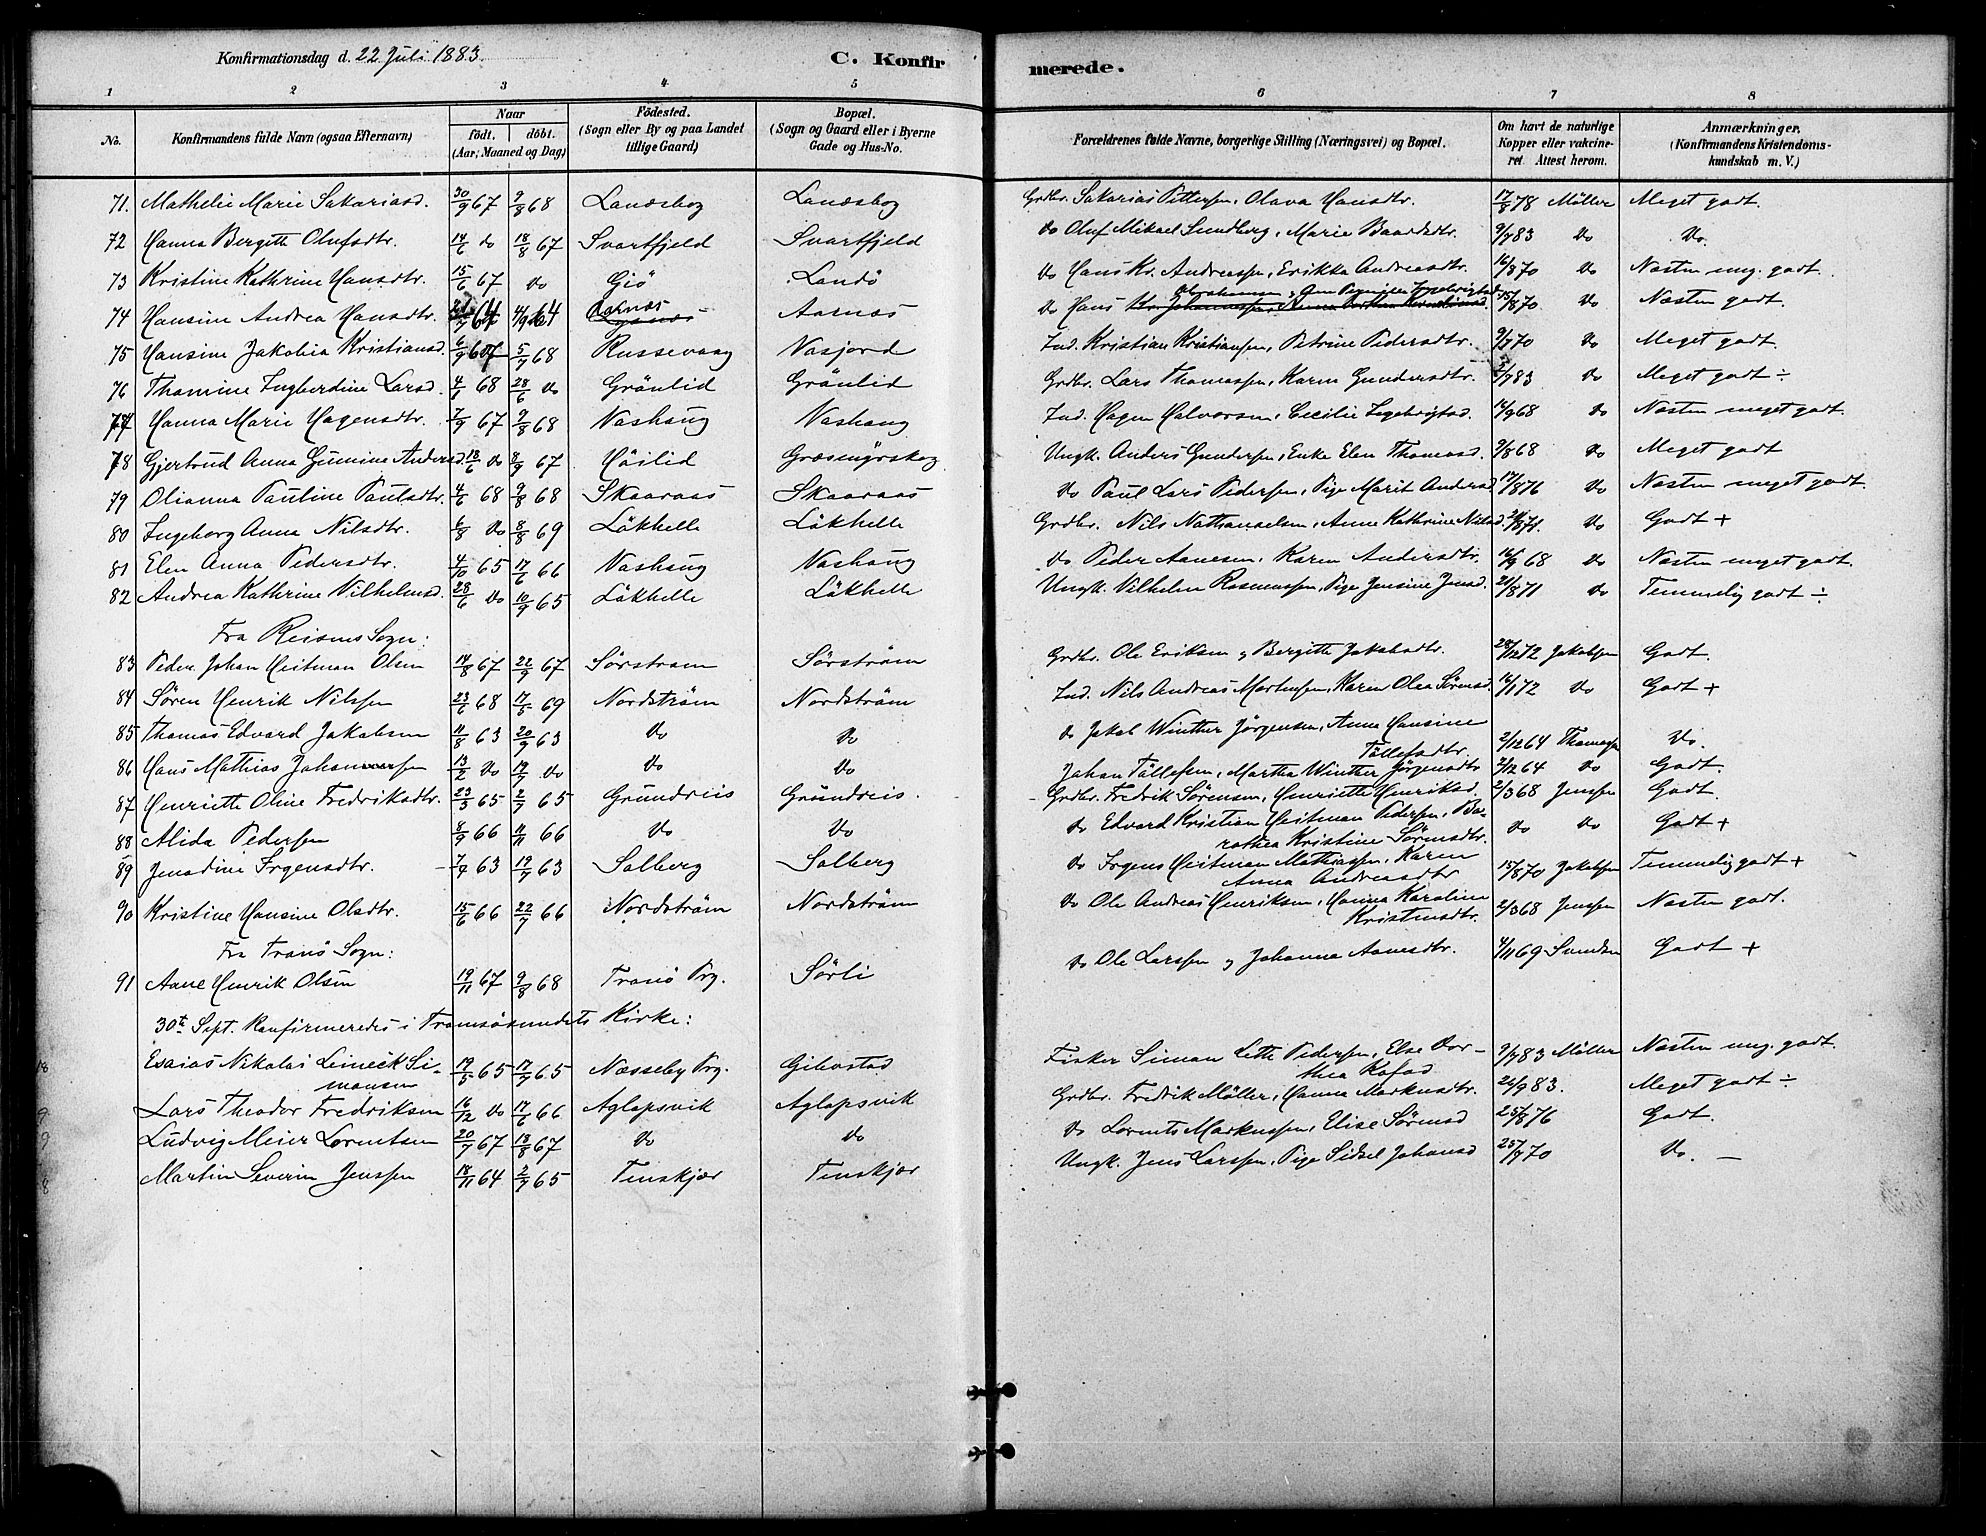 Konfirmationsdag d. 22 Juli 1883. C. Konfir merede.
1 2 3 4 5 6 7 8
No. Konfirmandens fulde Navn (ogsaa Efternavn) Naar födt. döbt. (Aar, Maaned og Dag) Födested. (Sogn eller By og paa Landet tillige Gaard) Bopæl. (Sogn og Gaard eller i Byerne Gade og Hus-No. Forældrenes fulde Navne, borgerlige Stilling (Næringsvei) og Bopæl. Om havt de naturlige Kopper eller vakcineret. Attest herom. Anmærkninger. (Konfirmandens Kristendomskundskab m. V.)
71. Mathelie Marie Sakariasd. 30/9 67 9/8 68 Landsbog Landsbog Grdbr. Sakarias Pettersen, Olava Hansdtr. 17/8 78 Möller Meget godt.
72 Hanna Bergitte Olufsdtr. 14/6 do 18/8 67 Svartfjeld Svartfjeld do Oluf Mikael Sundberg, Marie Baardsdtr. 9/7 83 do do.
73 Kristine Kathrine Hansdtr. 15/6 67 do Giö Landö do Hans Kr. Andreassen, Erikka Andreasdtr. 16/8 70 do Næsten meg. godt.
74 Hansine Andrea Hansdtr. 64 4/9 64 Aarnæs Aarnæs do Hans 15/8 70 do Næsten godt.
75 Hansine Jakobia Kristiansd. 6/9 67 5/7 68 Russevaag Vasjord Ind. Kristian Kristiansen, Petrine Pedersdtr. 9/7 70 do Meget godt.
76 Thomine Ingberdine Larsd. 4/1 68 28/6 do Grönlid Grönlid Grdbr. Lars Thomassen, Karen Gundersdtr. 2/7 83 do Meget godt ÷
77 Hanna Marie Hagensdtr. 7/9 67 9/8 68 Vashaug Vashaug Ind. Hagen Halvorsen, Cecilie Ingebrigtsd. 16/9 68 do Næsten meget godt.
78 Gjertrud Anna Gumine Andersd. 18/6 do 8/9 67 Höilid Græsmyrskog Ungk. Anders Gundersen, Enke Elen Thomasd. 9/8 68 do Meget godt
79 Olianna Pauline Paulsdtr. 4/6 68 9/8 68 Skaaraas Skaaraas do Paul Lars Pedersen, Pige Marit Andersd 17/8 76 do Næsten meget godt
80 Ingeborg Anna Nilsdtr. 6/8 do 8/8 69 Läkhelle Läkhelle Grdbr. Nils Nathanaelsen, Anne Kathrine Nilsd. 21/8 71. do Godt +
81 Elen Anna Pedersdtr. 4/10 65 17/6 66 Vashaug Vashaug do Peder Aanesen, Karen Andersdtr. 16/9 68 do Næsten meget godt.
82 Andrea Kathrine Vilhelmsd. 28/6 do 10/9 65 Läkhelle Läkhelle Ungk. Vilhelm Rasmussen, Pige Jensine Jensd. 21/8 71 do Temmelig godt ÷
Fra Reisens Sogn:
83 Peder Johan Heitman Olsen 14/8 67 22/9 67 Sörström Sörström Grdbr. Ole Eriksen og Bergitte Jakobsdtr. 29/12 72 Jakobsen Godt.
84 Sören Henrik Nilsen 23/6 68 17/5 69 Nordström Nordström Ind. Nils Andreas Mortensen, Karen Olea Sörensd. 16/1 72 do Godt +
85 Thomas Edvard Jakobsen 11/8 63 20/9 63 do do do Jakob Winther Jörgensen, Anne Hansine Töllefsdtr. 2/12 64 Thomassen do.
86 Hans Mathias Johannesen 13/2 do 19/7 do do do Johan Töllefsen, Martha Winther Jörgensdtr 2/12 64 do Godt.
87 Henriette Oline Fredriksdtr. 23/5 65 2/7 65 Grundreis Grundreis. Grdbr. Fredrik Sörensen, Henriette Henriksd. 2/3 68 Jenssen Godt.
88 Alida Pedersen 8/9 66 11/11 66 do do do Edvard Kristian Heitman Pedersen, Barothea Kristine Sörensdtr. do do Godt +
89 Jensdine Irgensdtr. 7/4 63 19/7 63 Solberg Solberg do Irgens Heitman Mathiassen, Karen Anna Andreasdtr 15/8 70 Jakobsen Temmelig godt +
90 Kristine Hansine Olsdtr. 15/6 66 22/7 66 Nordström Nordström do Ole Andreas Henriksen, Hanna Karoline Kristensdtr. 2/3 68 Jenssen Næsten godt.
Fra Tranö Sogn:
91 Aane Henrik Olsen 19/11 67 9/8 68 Tranö Prg. Sörli do Ole Larssen og Johanna Aanesdtr. 4/11 69 Svendsen Godt +
30te Sept. konfirmeredes i Tromsösundets Kirke:
Esaias Nikolai Leimeik Simonsen 19/5 65 17/7 65 Næsseby Prg. Gibostad Fisker Simon Lette Pedersen, Else Dorthea Kofod 9/7 83 Möller Næsten meg. godt.
Lars Theodor Fredriksen 16/12 do 17/6 66 Aglapsvik Aglapsvik Grdbr. Fredrik Möller, Hanna Markusdtr. 24/9 83. Meget godt ÷
Ludvig Meier Lorentsen 20/7 67 18/8 67 do do do Lorents Markussen, Elise Sörensd 25/8 76 Godt.
Martin Severin Jenssen 18/11 64 2/7 65 Tenskjær Tenskjær Ungk. Jens Larssen, Pige Sidsel Johansd 25/7 70 do. —